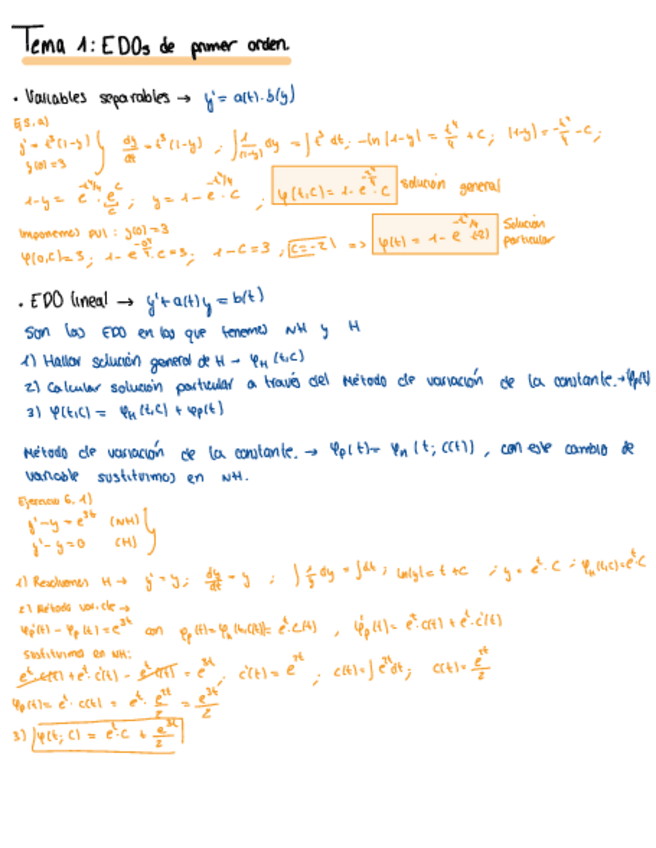 Tema 1: EDOs de primer orden.
• Variables separables → y' = a(t)·b(y)
Ej 5. a)
y' = t³(1-y) } dy/dt = t³(1-y) ; ∫ 1/(1-y) dy = ∫ t³ dt ; -ln|1-y| = t⁴/4 + C ; |1-y| = -t⁴/4 - C ;
y(0) = 3
1-y = e^(-t⁴/4) · ; y = 1 - e^(-t⁴/4)·C ; φ(t,C) = 1 - e^(-t⁴/4)·C solución general
Imponemos PVI : y(0) = 3
φ(0,C) = 3 ; 1 - e^(-0⁴/4)·C = 3 ; 1 - C = 3 ; C = -2 => φ(t) = 1 - e^(-t⁴/4)(-2) Solución particular
• EDO lineal → y' + a(t)y = b(t)
Son las EDO en las que tenemos NH y H
1) Hallar solución general de H → φH(t,C)
2) Calcular solución particular a través del Método de variación de la constante. → φp(t)
3) φ(t,C) = φH(t,C) + φp(t)
Método de variación de la constante. → φp(t) = φH(t; C(t)) , con este cambio de
variable sustituimos en NH.
Ejercicio 6. 1)
y' - y = e^(3t) (NH) }
y' - y = 0 (H)
1) Resolvemos H → y' = y ; dy/dt = y ; ∫ 1/y dy = ∫ dt ; ln|y| = t + C ; y = e^t·C ; φH(t,C) = e^t·C
2) Método var. cte →
φp'(t) - φp(t) = e^(3t) con φp(t) = φH(t,C(t)) = e^t·C(t) , φp'(t) = e^t·C(t) + e^t·C'(t)
Sustituimos en NH:
e^t·C(t) + e^t·C'(t) - e^t·C(t) = e^(3t) ; C'(t) = e^(2t) ; C(t) = ∫ e^(2t) dt ; C(t) = e^(2t)/2
φp(t) = e^t·C(t) = e^t · e^(2t)/2 = e^(3t)/2
3) φ(t; C) = e^t·C + e^(3t)/2